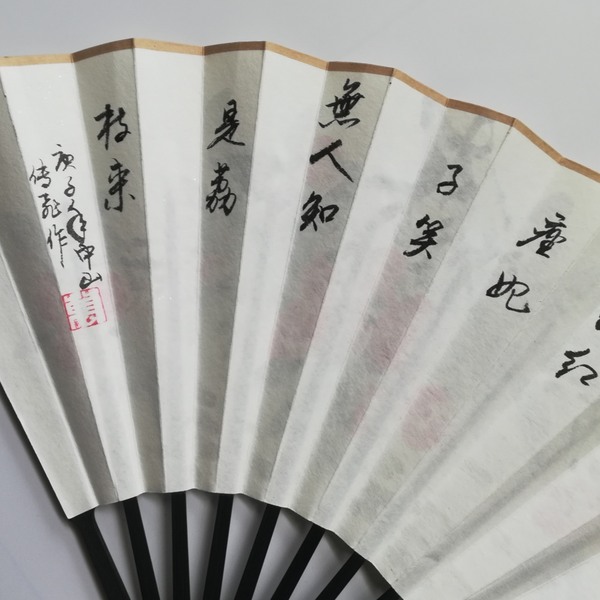 红
塵妃
子笑
無人知
是荔
枝来
庚子年中山
传龍作